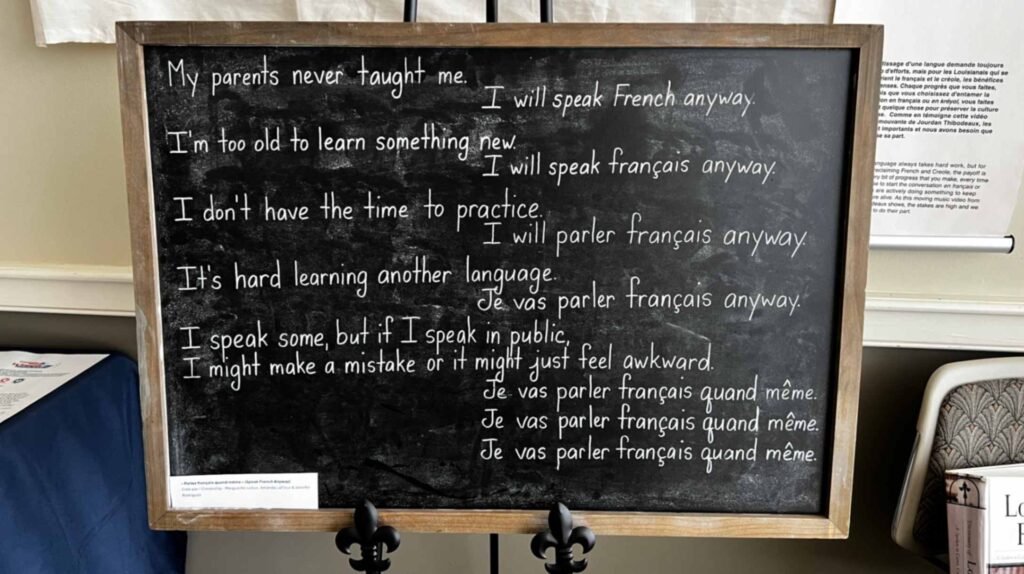 My parents never taught me.
I will speak French anyway.
I'm too old to learn something new.
I will speak français anyway.
I don't have the time to practice.
I will parler français anyway.
It's hard learning another language.
Je vas parler français anyway.
I speak some, but if I speak in public,
I might make a mistake or it might just feel awkward.
Je vas parler français quand même.
Je vas parler français quand même.
Je vas parler français quand même.
d'une langue demande toujours
d'efforts, mais pour les Louisianais qui se
le français et le créole, les bénéfices
Chaque progrès que vous faites,
que vous choisissez d'entamer la
en français ou en kréyol, vous faites
quelque chose pour préserver la culture
Comme en témoigne cette vidéo
de Jourdan Thibodeaux, les
importants et nous avons besoin que
sa part.
always takes hard work, but for
French and Creole, the payoff is
bit of progress that you make, every time
to start the conversation en français or
are actively doing something to keep
alive. As this moving music video from
shows, the stakes are high and we
to do their part.